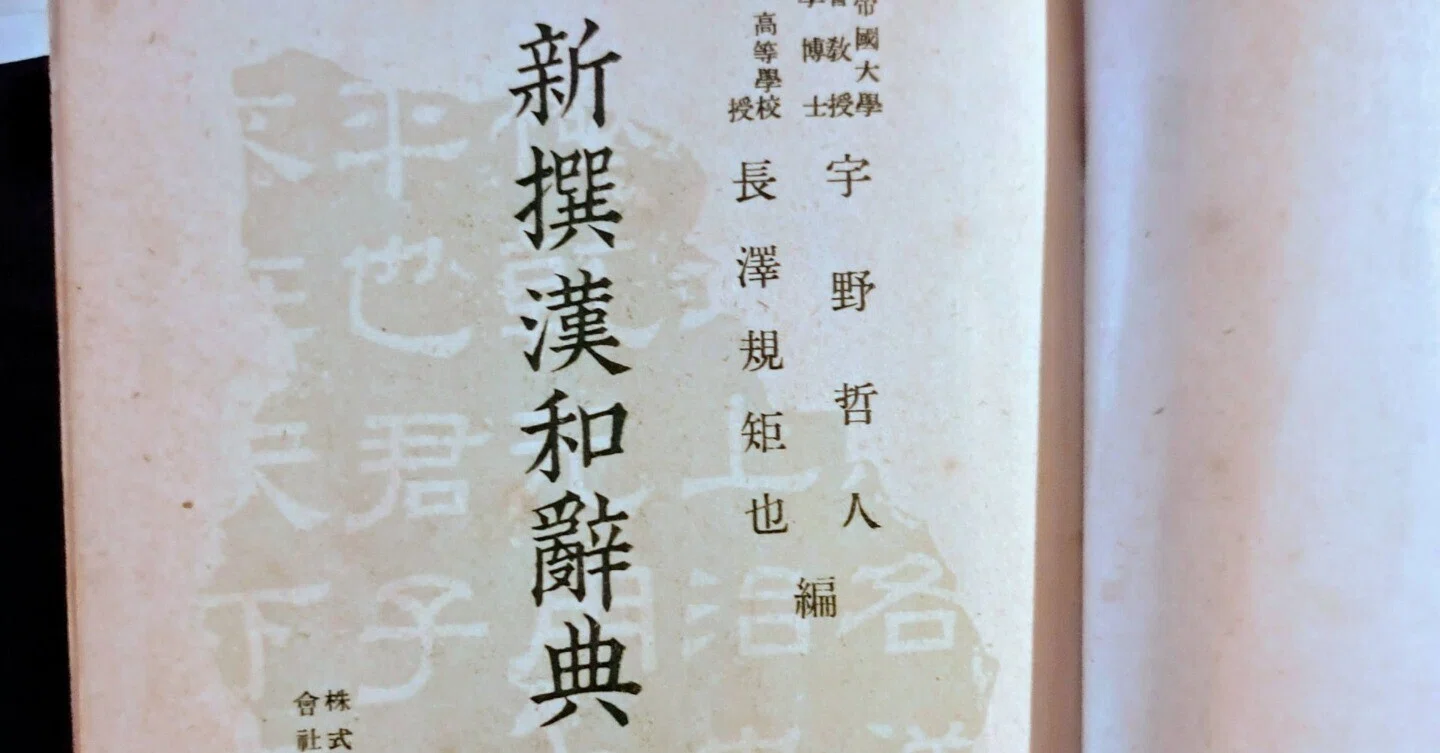 帝國大學教授
博士
宇野哲人
高等學校教授
長澤規矩也
編
新撰漢和辭典
株式會社